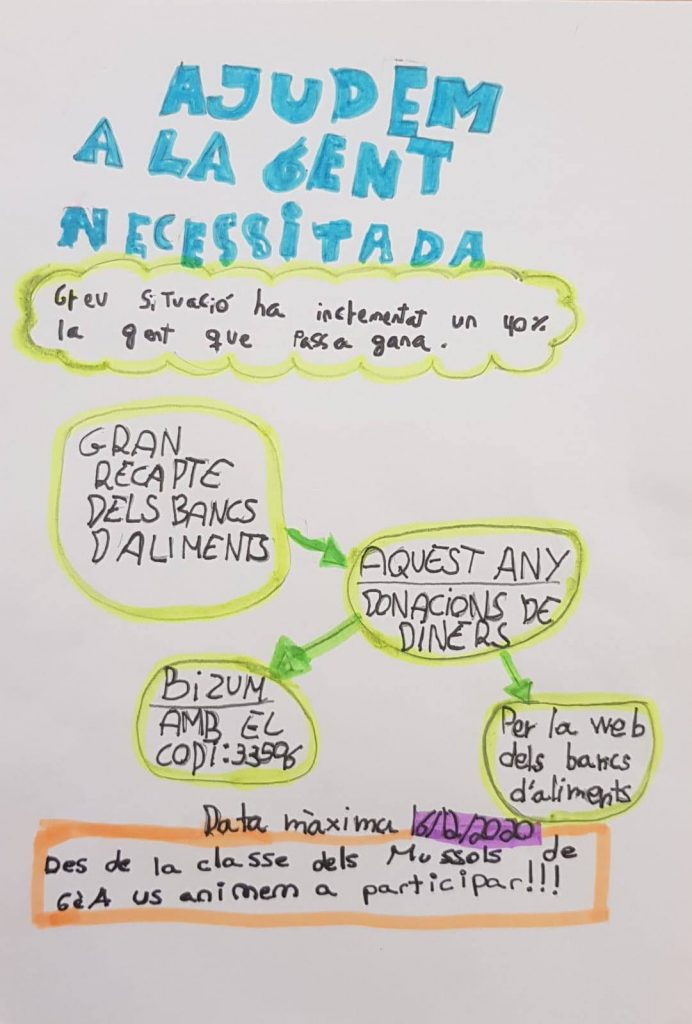 AJUDEM
A LA GENT
NECESSITADA
Greu SiTuació ha incrementat un 40%
la gent que Passa gana.
GRAN
RECAPTE
DELS BANCS
D'ALIMENTS
AQUEST ANY
DONACIONS DE
DINERS
BIZUM
AMB EL
CODI:33596
Per la web
dels bancs
d'aliments
Data màxima 16/12/2020
Des de la classe dels Mussols de
6èA us animem a participar!!!